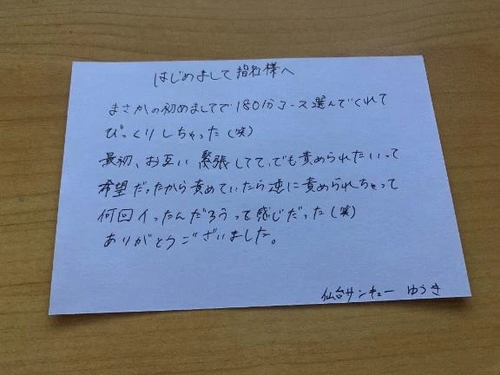 はじめまして 指名様へ
まさかの初めましてで180分コース選んでくれて
びっくりしちゃった(笑)
最初、お互い緊張してて、でも責められたいって
希望だったから責めていたら逆に責められちゃって
何回イったんだろうって感じだった(笑)
ありがとうございました。
仙台サンキュー ゆうき